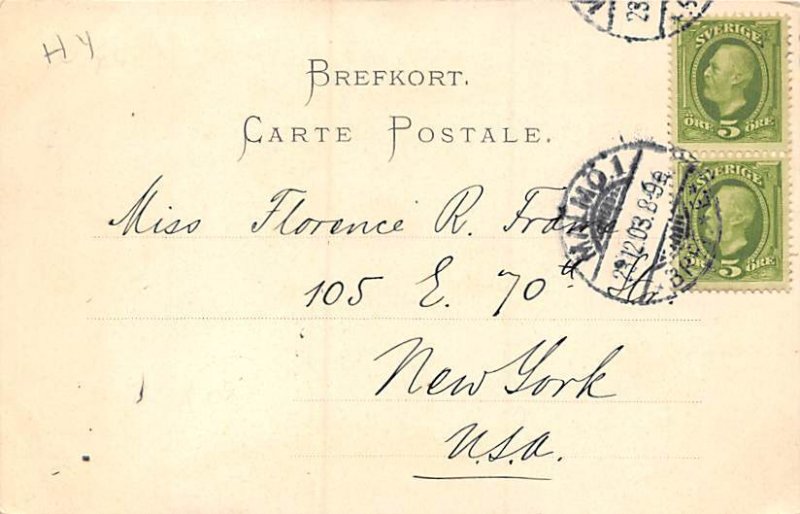 H Y
BREFKORT.
CARTE POSTALE.
SVERIGE
ÖRE 5 ÖRE
SVERIGE
5 ÖRE
MALMÖ.1.
29.12.03.8-9
Miss Florence R.
105 E. 70th Str.
New York
U.S.A.